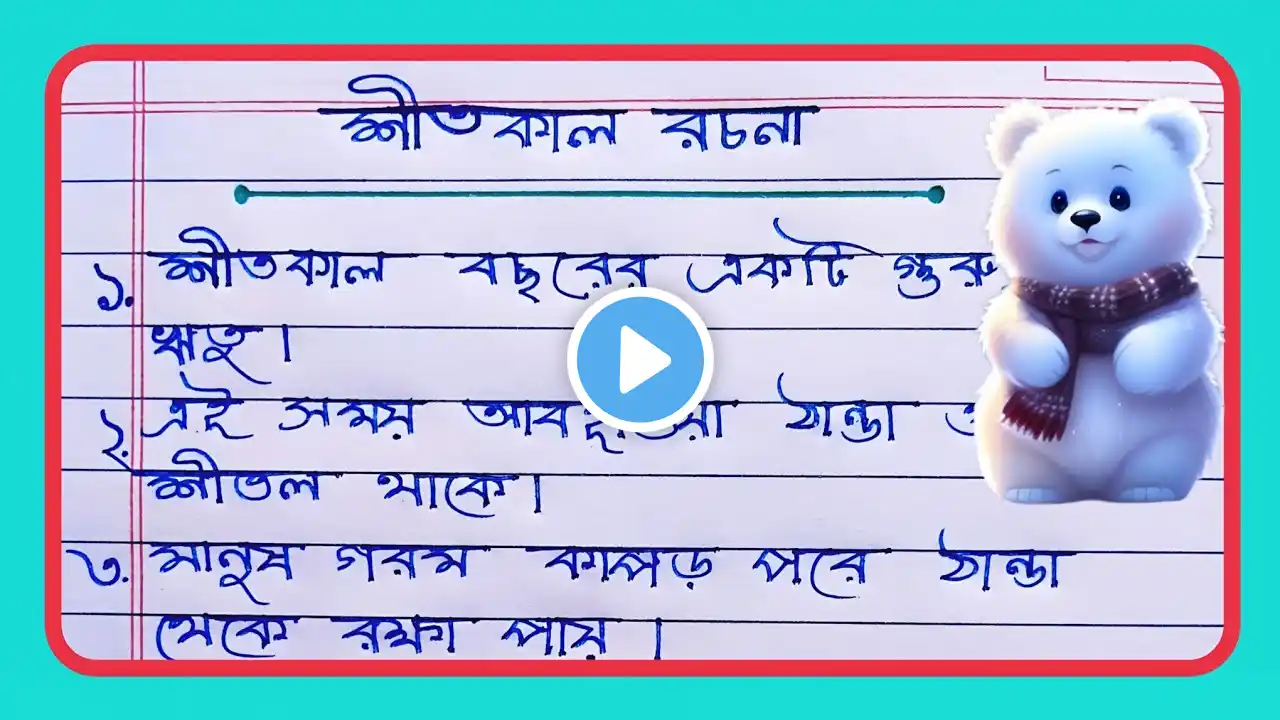 শীতকাল রচনা
১. শীতকাল বছরের একটি
ঋতু।
২. এই সময় আবহাওয়া ঠান্ডা
শীতল থাকে।
৩. মানুষ গরম কাপড় পরে ঠান্ডা
থেকে রক্ষা পায়।